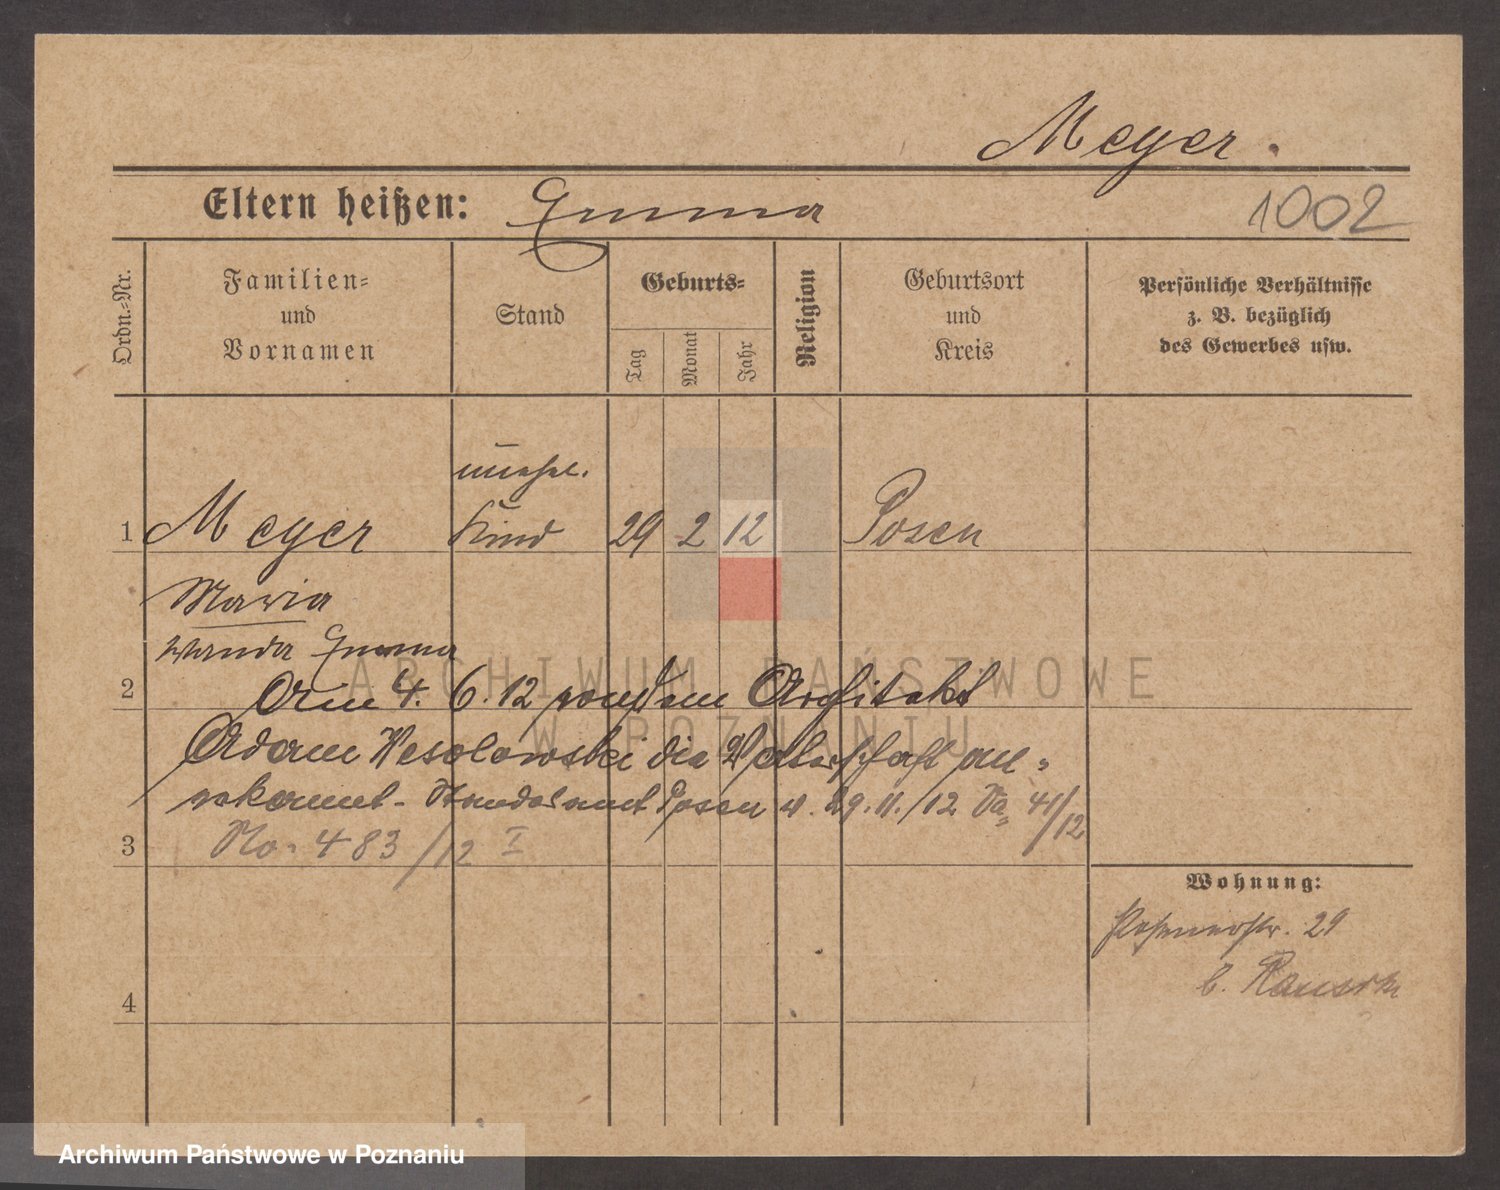 Meyer.
Eltern heißen: Emma
1002
Ordn.-Nr.
Familien-
und
Vornamen
Stand
Geburts-
Tag
Monat
Jahr
Religion
Geburtsort
und
Kreis
Persönliche Verhältnisse
z. B. bezüglich
des Gewerbes usw.
unehel.
1 Meyer Kind 29 2 12 Posen
Maria
Wanda Emma
2 Am 4. 6. 12 von dem Architekt
Adam Wesolowski die Vaterschaft an-
erkannt - Standesamt Posen v. 29. 11./12 41/12
3 No. 483/12 I
Wohnung:
Posenerstr. 29
b.
4
ARCHIWUM PAŃSTWOWE
W POZNANIU
Archiwum Państwowe w Poznaniu